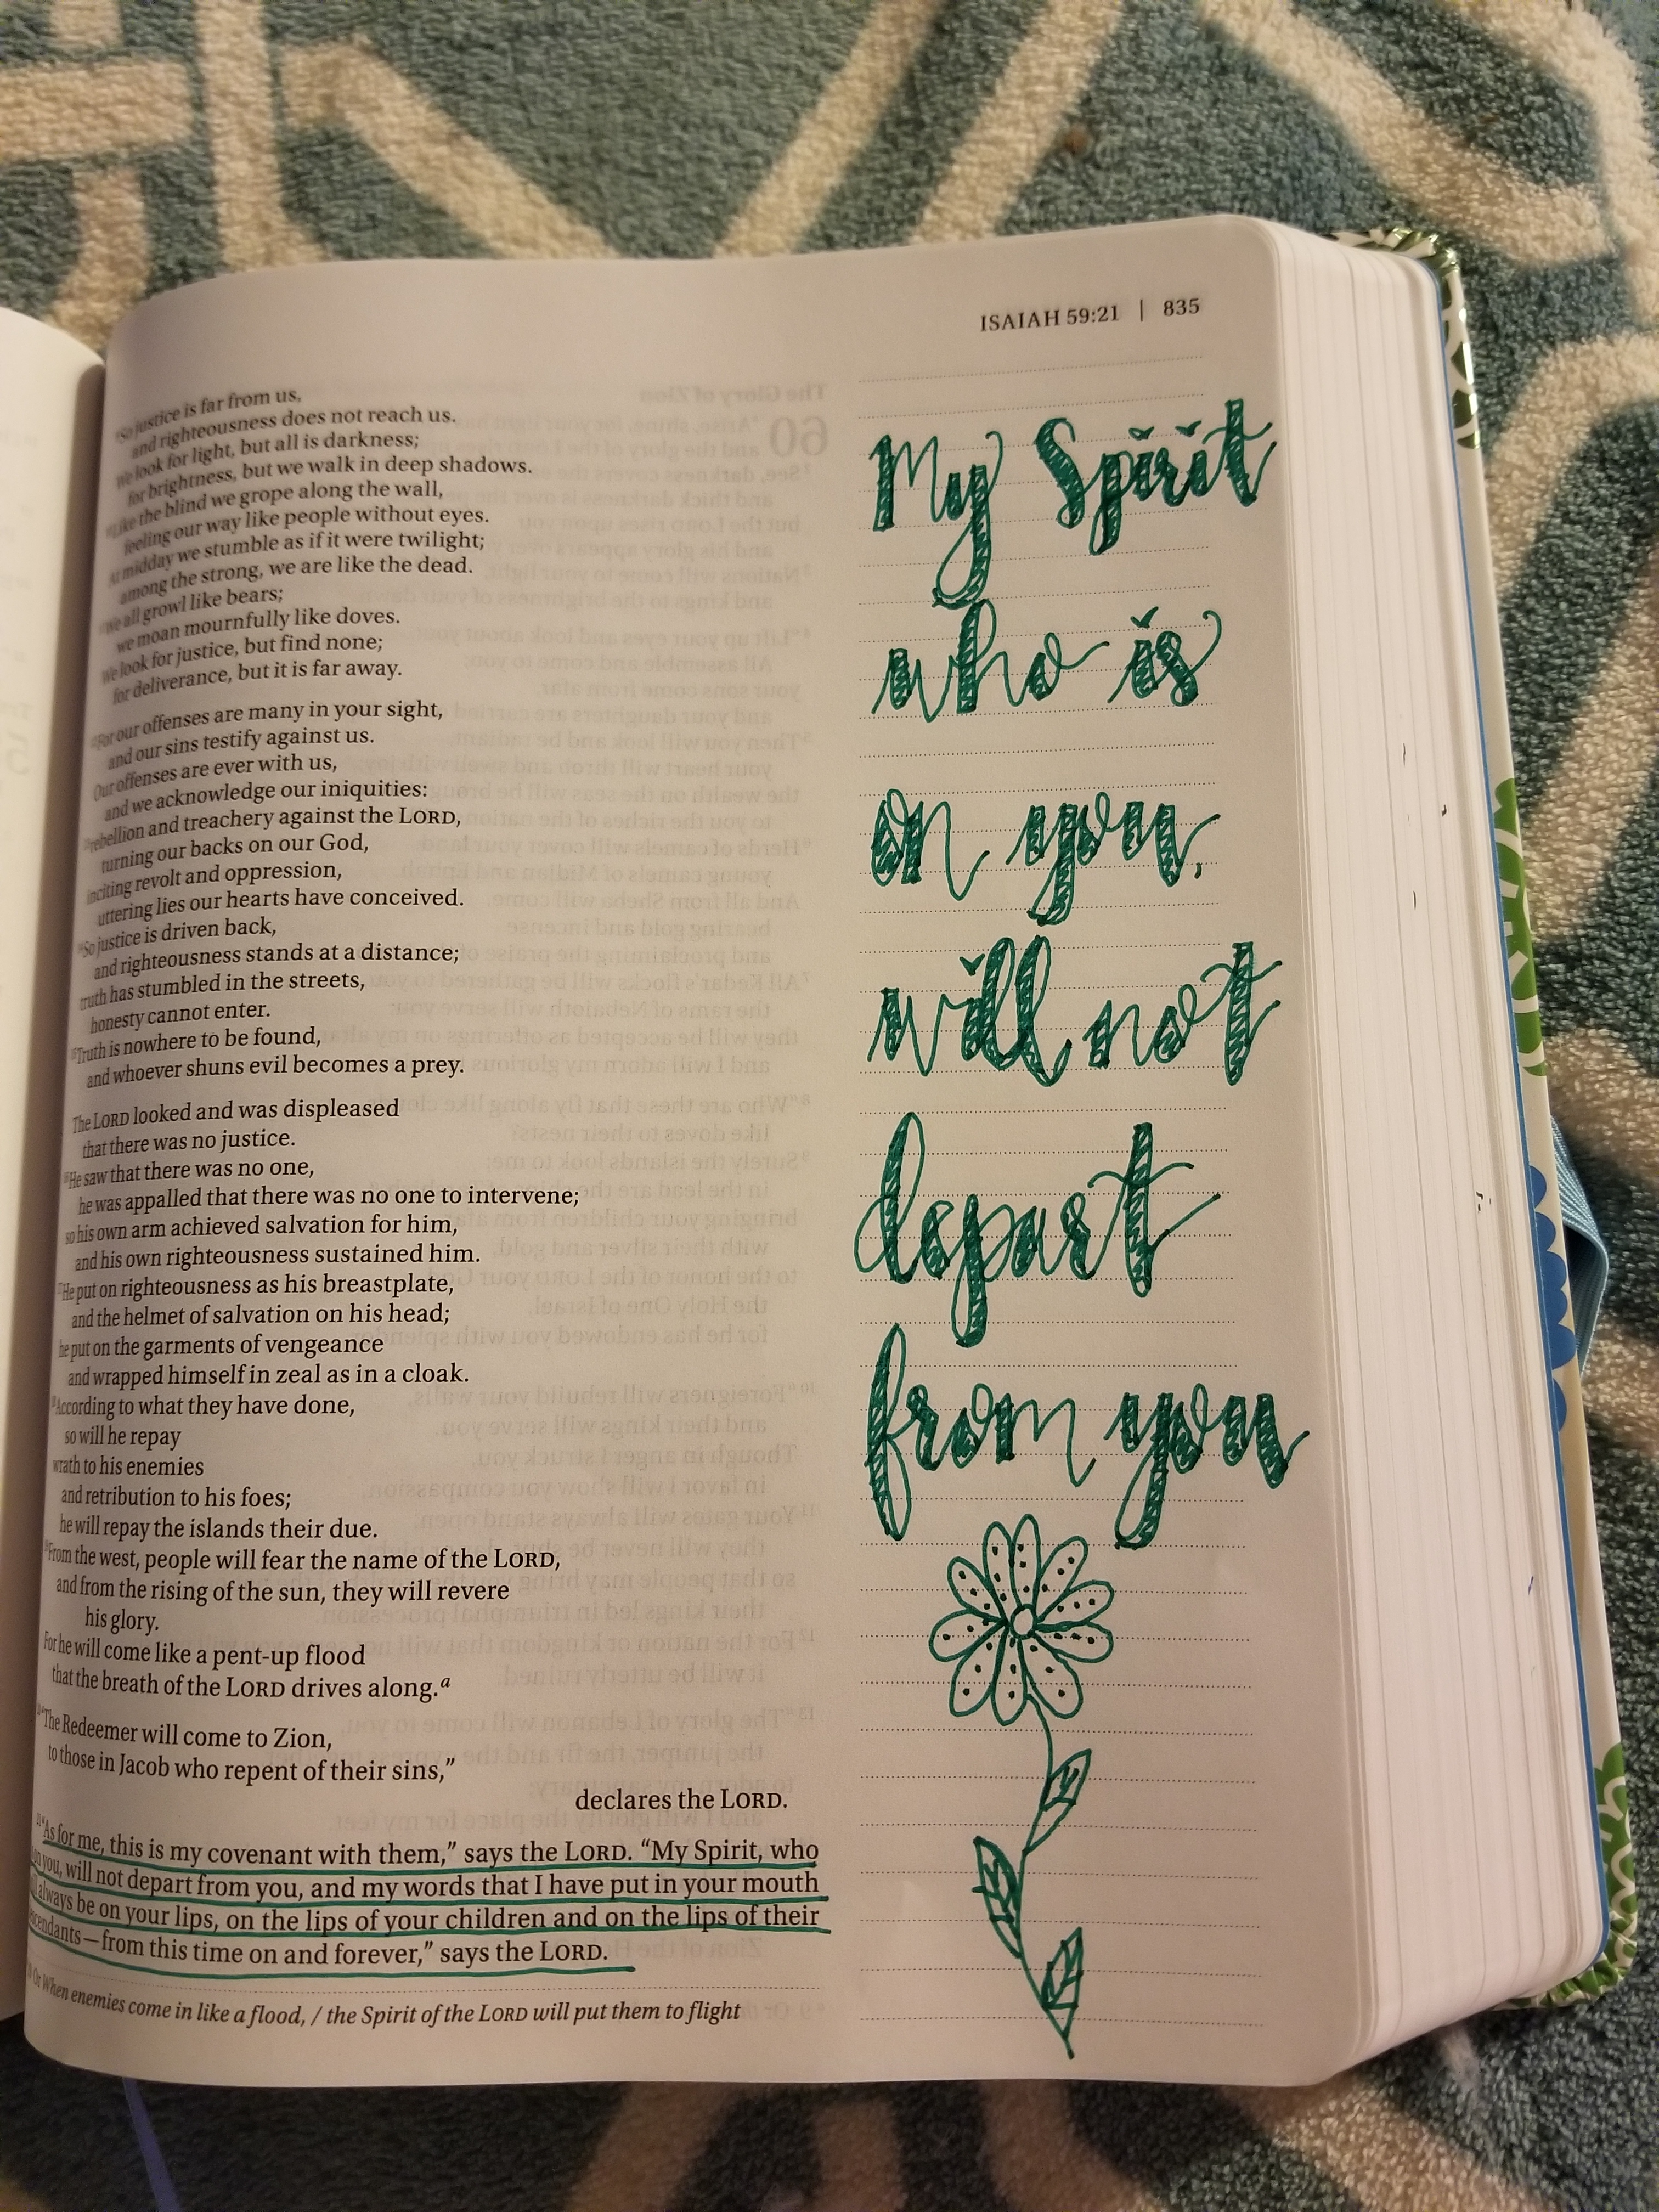 ISAIAH 59:21 | 835
So justice is far from us,
and righteousness does not reach us.
We look for light, but all is darkness;
for brightness, but we walk in deep shadows.
Like the blind we grope along the wall,
feeling our way like people without eyes.
At midday we stumble as if it were twilight;
among the strong, we are like the dead.
We all growl like bears;
we moan mournfully like doves.
We look for justice, but find none;
for deliverance, but it is far away.
For our offenses are many in your sight,
and our sins testify against us.
Our offenses are ever with us,
and we acknowledge our iniquities:
rebellion and treachery against the LORD,
turning our backs on our God,
inciting revolt and oppression,
uttering lies our hearts have conceived.
So justice is driven back,
and righteousness stands at a distance;
truth has stumbled in the streets,
honesty cannot enter.
Truth is nowhere to be found,
and whoever shuns evil becomes a prey.
The LORD looked and was displeased
that there was no justice.
He saw that there was no one,
he was appalled that there was no one to intervene;
so his own arm achieved salvation for him,
and his own righteousness sustained him.
He put on righteousness as his breastplate,
and the helmet of salvation on his head;
he put on the garments of vengeance
and wrapped himself in zeal as in a cloak.
According to what they have done,
so will he repay
wrath to his enemies
and retribution to his foes;
he will repay the islands their due.
From the west, people will fear the name of the LORD,
and from the rising of the sun, they will revere
his glory.
For he will come like a pent-up flood
that the breath of the LORD drives along.a
"The Redeemer will come to Zion,
to those in Jacob who repent of their sins,"
declares the LORD.
"As for me, this is my covenant with them," says the LORD. "My Spirit, who
on you, will not depart from you, and my words that I have put in your mouth
always be on your lips, on the lips of your children and on the lips of their
descendants—from this time on and forever," says the LORD.
Or When enemies come in like a flood, / the Spirit of the LORD will put them to flight
My Spirit
who is
on you,
will not
depart
from you